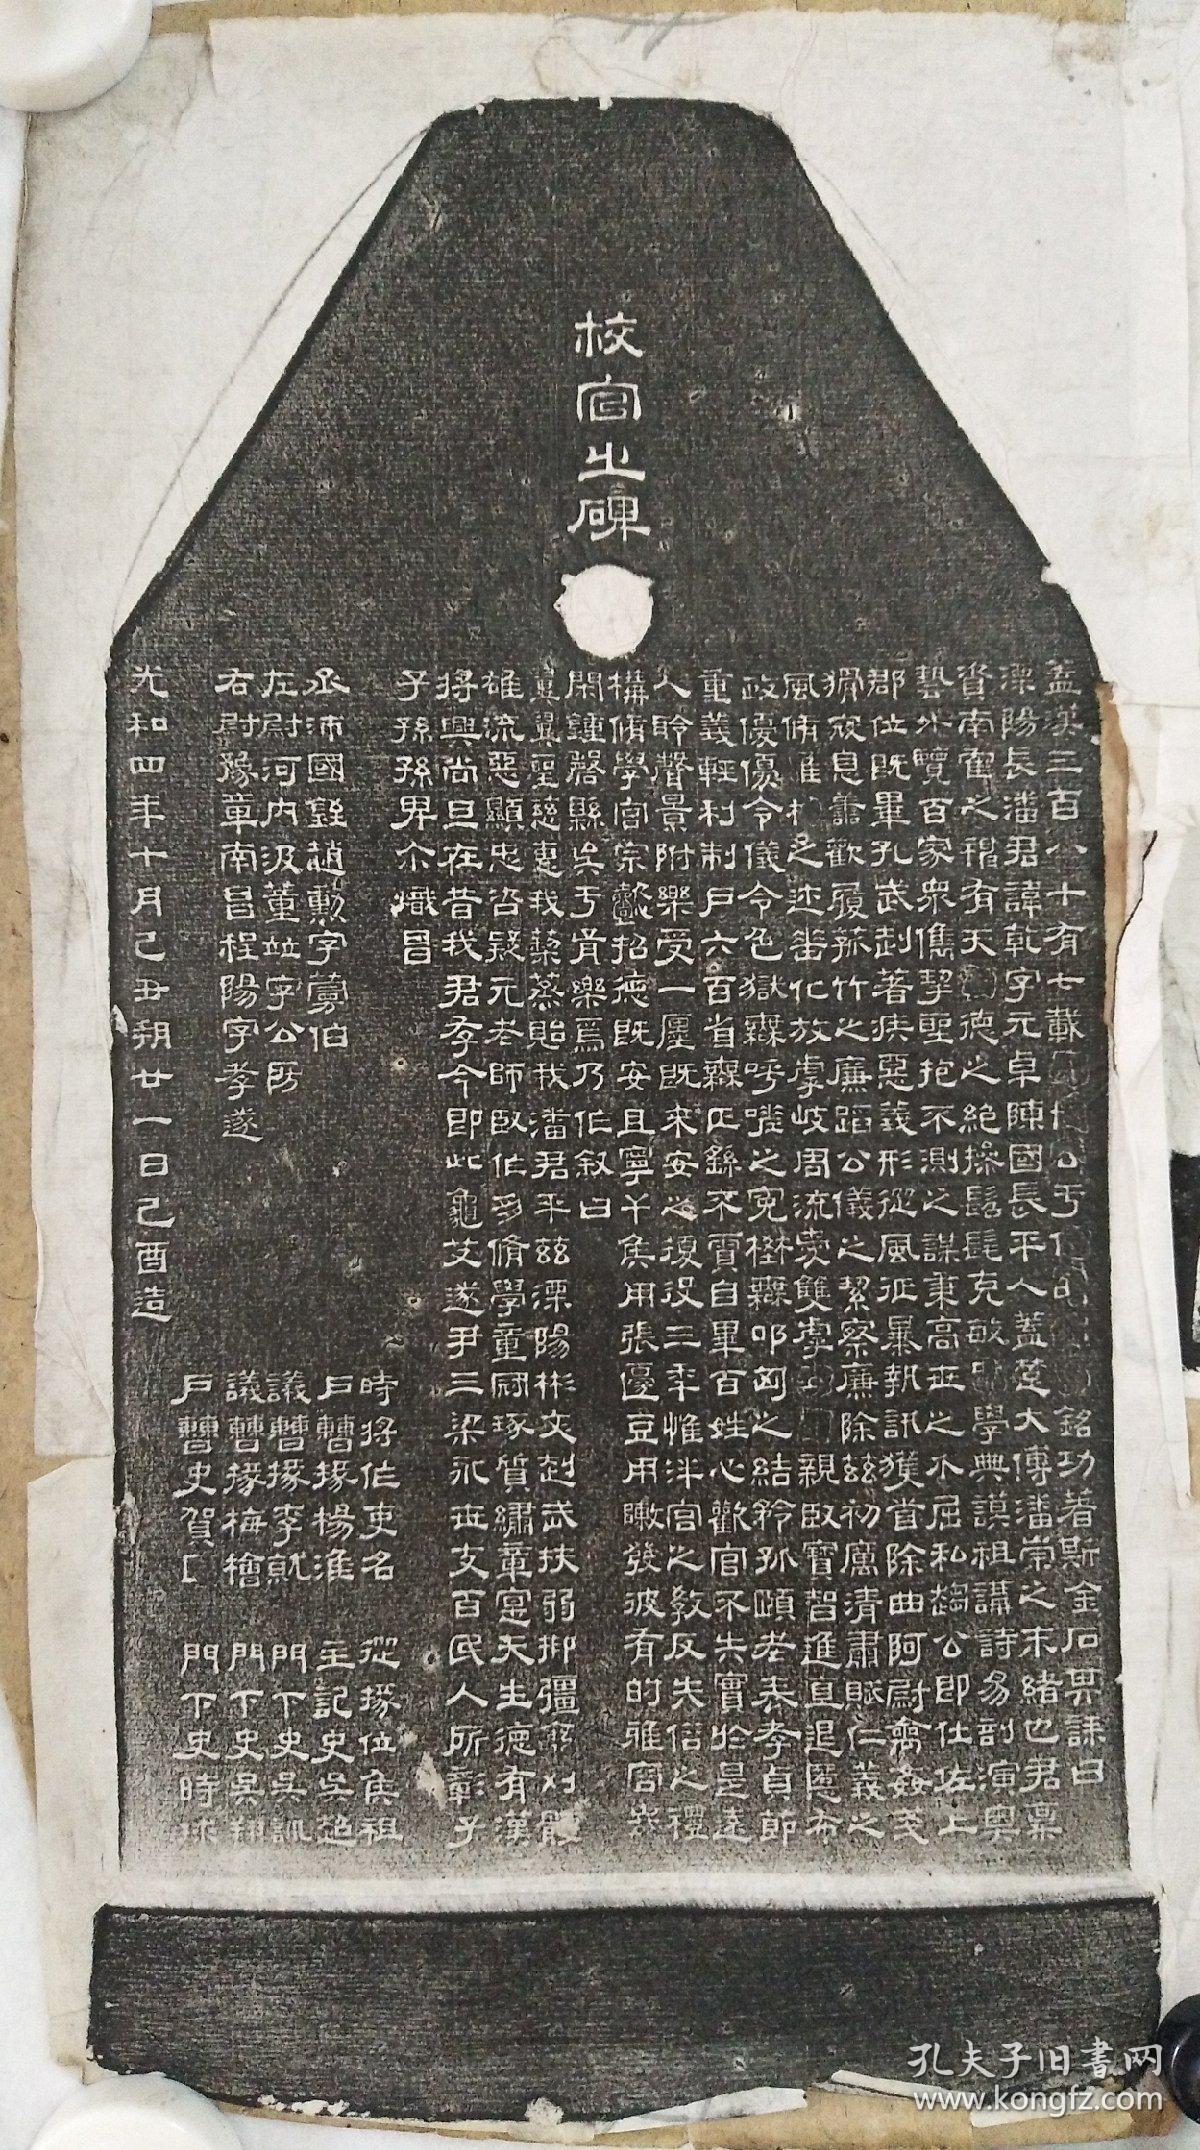 校官之碑
盖漢三百八十有七載
于
銘功著斯金石畀誄曰
溧陽長潘君諱乾字元卓陳國長平人蓋楚大傅潘崇之末緒也君稟
資南霍之有天德之絕操髫髦克敏學典謨祖講詩易剖演奧
藝外覽百家衆儁挈聖抱不測之謀秉高世之介屈私趨公即仕佐上
郡位既畢孔武赳著疾惡義形從風征暴執訊獲首除曲阿尉禽姦戔
猾寇息善歡履菰竹之廉蹈公儀之絜察廉除茲初厲清肅賦仁義之
風脩之迹化放虖岐周流布雙虖親臤寶智進直退慝布
政優優令儀令色獄無呼嗟之冤壄無叩匈之結矜孤頤老表孝貞節
重義輕利制戶六百省無正繇不責自畢百姓心歡官不失實於是遠
人聆聲景附樂受一廛既來安之復役三年惟泮宮之教反失俗之禮
構脩學宮宗懿招德既安且寧干矦用張籩豆用陳發彼有的雅容
閑鍾磬縣矣于胥樂焉乃作叙曰
翼翼聖慈惠我黎蒸貽我潘君平茲溧陽彬文赳武扶弱抑彊
雄流惡顯忠咨疑元老師臤作多脩學童冠琢質繡章寔天生德有漢
將興尚旦在昔我君存今即此龜艾遂尹三梁永世支百民人所彰子
子孫孫畀尒熾昌
丞沛國趙勳字蔓伯
左尉河内汲董竝字公防
右尉豫章南昌程陽字孝遂
時將作吏名
戶曹掾楊淮
議曹掾李就
議曹掾梅檜
戶曹史賀
從掾位矦祖
主記史吳超
門下史吳訓
門下史吳翔
門下史時球
光和四年十月己丑朔廿一日己酉造
孔夫子旧書网
www.kongfz.com